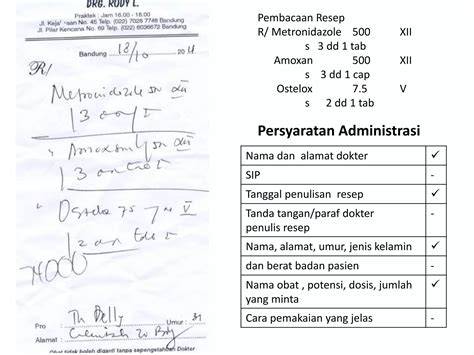 DRG. RUDY L.
Praktek : Jam 16.00 - 18.00
No. 45 Telp. (022) 7028 7748 Bandung
Jl. Pilar Kencana No. 69 Telp. (022) 6036672 Bandung
Bandung 18/10 20
R/
Metronidazole 500 XII
Amoxan 500 XII
Ostelox 7.5 V
Pro : Th Delly Umur : 31
Alamat :
Obat tidak boleh diganti tanpa sepengetahuan Dokter
Pembacaan Resep
R/ Metronidazole 500 XII
s 3 dd 1 tab
Amoxan 500 XII
s 3 dd 1 cap
Ostelox 7.5 V
s 2 dd 1 tab
Persyaratan Administrasi
Nama dan alamat dokter ✓
SIP -
Tanggal penulisan resep ✓
Tanda tangan/paraf dokter -
penulis resep
Nama, alamat, umur, jenis kelamin ✓
dan berat badan pasien -
Nama obat , potensi, dosis, jumlah ✓
yang minta
Cara pemakaian yang jelas -